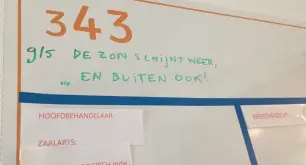 343
9/5 DE ZON SCHIJNT WEER,
... EN BUITEN OOK!
HOOFDBEHANDELAAR
ZAALARTS: